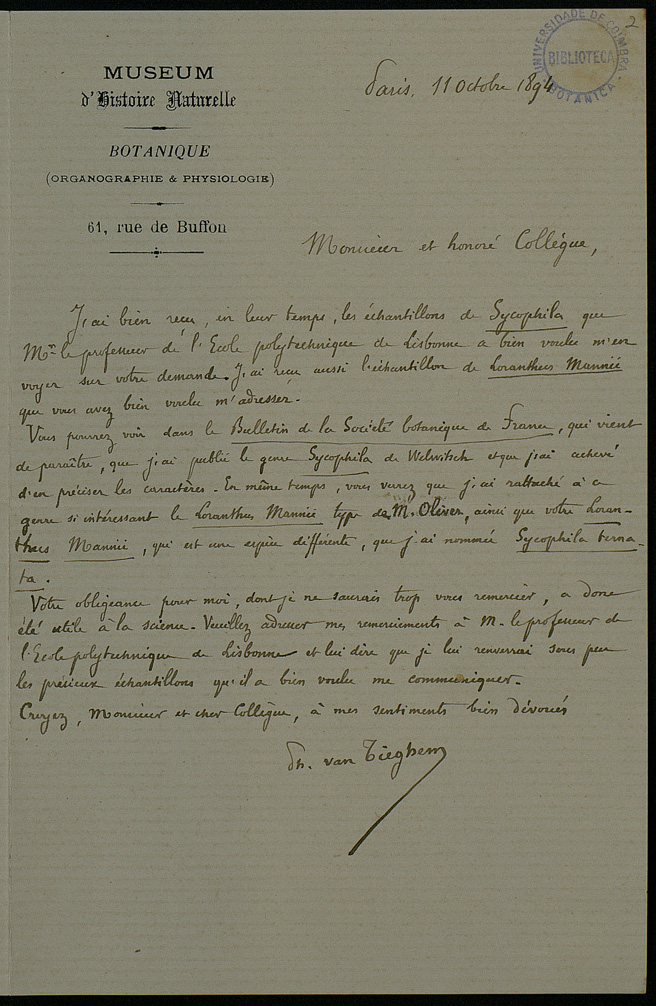 2
UNIVERSIDADE DE COIMBRA
BIBLIOTECA
BOTANICA
MUSEUM
d'Histoire Naturelle
BOTANIQUE
(ORGANOGRAPHIE & PHYSIOLOGIE)
61, rue de Buffon
Paris, 11 Octobre 1894
Monsieur et honoré Collègue,
J'ai bien reçu, en leur temps, les échantillons de Sycophila que
Mr. le professeur de l'Ecole polytechnique de Lisbonne a bien voulu m'en
voyer sur votre demande. J'ai reçu aussi l'échantillon de Loranthus Mannii
que vous avez bien voulu m'adresser.
Vous pourrez voir dans le Bulletin de la Société botanique de France, qui vient
de paraître, que j'ai publié le genre Sycophila de Welwitsch et que j'ai achevé
d'en préciser les caractères. En même temps, vous verez que j'ai rattaché à ce
genre si intéressant le Loranthus Mannii type de Mr. Oliver, ainsi que votre Loran-
thus Mannii, qui est une espèce différente, que j'ai nommée Sycophila terna-
ta.
Votre obligeance pour moi, dont je ne saurais trop vous remercier, a donc
été utile à la science. Veuillez adresser mes remerciements à M. le professeur de
l'Ecole polytechnique de Lisbonne et lui dire que je lui renverrai sous peu
les précieux échantillons qu'il a bien voulu me communiquer.
Croyez, Monsieur et cher Collègue, à mes sentiments bien dévoués
Ph. van Tieghem